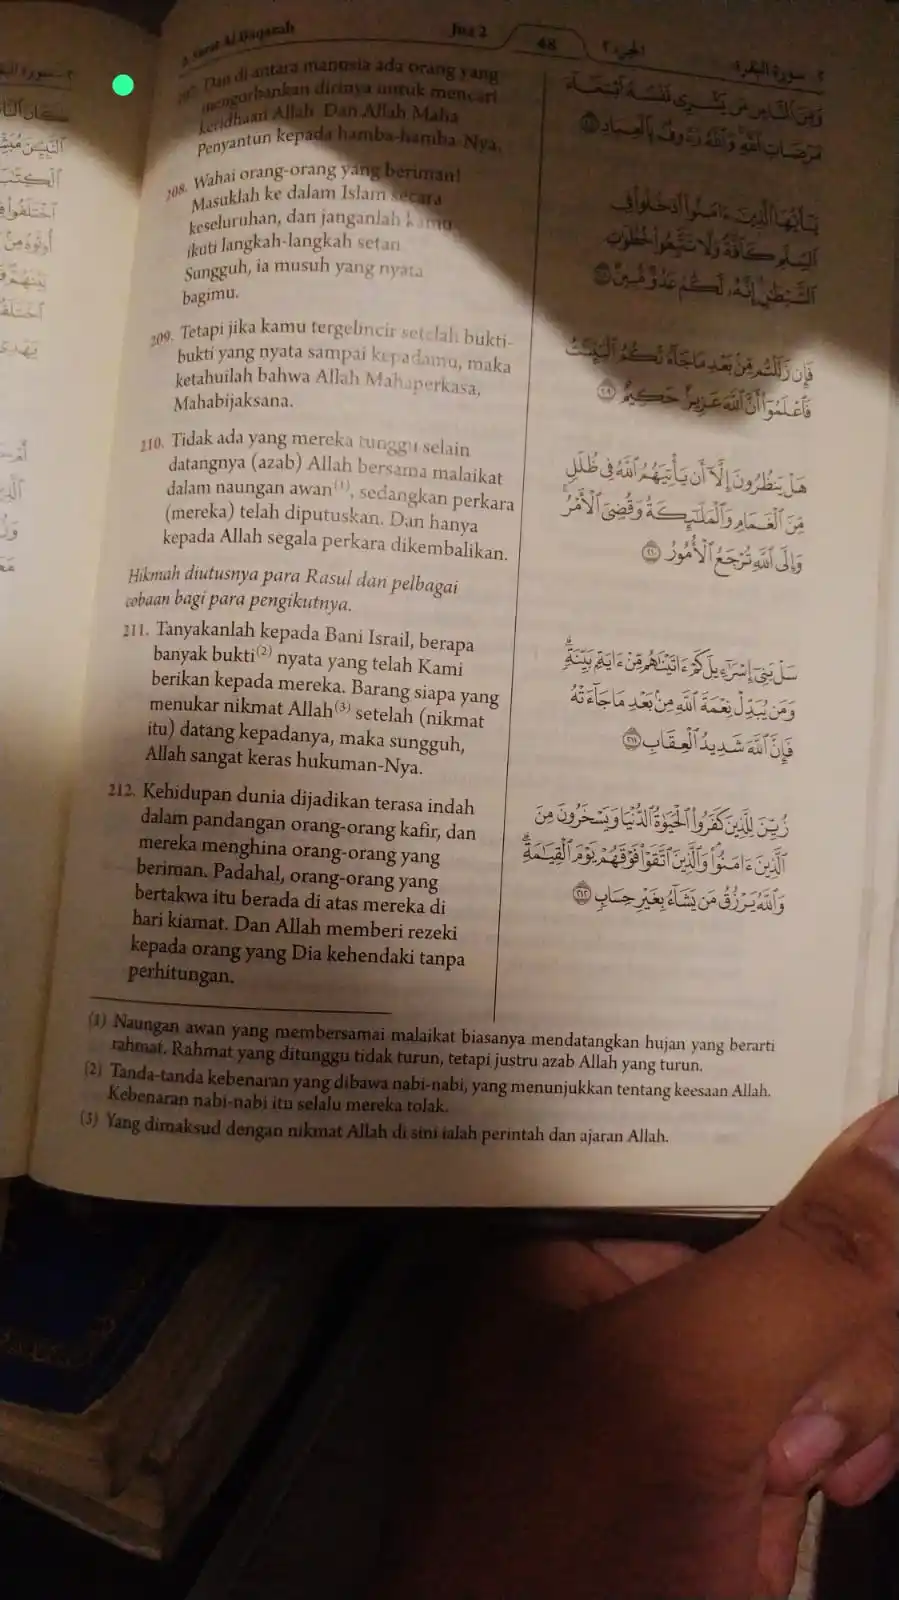 2. Surat Al Baqarah Juz 2 48 الجزء ٢ ٢ - سورة البقرة
207. Dan di antara manusia ada orang yang
mengorbankan dirinya untuk mencari
keridhaan Allah. Dan Allah Maha
Penyantun kepada hamba-hamba-Nya.
208. Wahai orang-orang yang beriman!
Masuklah ke dalam Islam secara
keseluruhan, dan janganlah kamu
ikuti langkah-langkah setan
Sungguh, ia musuh yang nyata
bagimu.
209. Tetapi jika kamu tergelincir setelah bukti-
bukti yang nyata sampai kepadamu, maka
ketahuilah bahwa Allah Mahaperkasa,
Mahabijaksana.
210. Tidak ada yang mereka tunggu selain
datangnya (azab) Allah bersama malaikat
dalam naungan awan(1), sedangkan perkara
(mereka) telah diputuskan. Dan hanya
kepada Allah segala perkara dikembalikan.
Hikmah diutusnya para Rasul dan pelbagai
cobaan bagi para pengikutnya.
211. Tanyakanlah kepada Bani Israil, berapa
banyak bukti(2) nyata yang telah Kami
berikan kepada mereka. Barang siapa yang
menukar nikmat Allah(3) setelah (nikmat
itu) datang kepadanya, maka sungguh,
Allah sangat keras hukuman-Nya.
212. Kehidupan dunia dijadikan terasa indah
dalam pandangan orang-orang kafir, dan
mereka menghina orang-orang yang
beriman. Padahal, orang-orang yang
bertakwa itu berada di atas mereka di
hari kiamat. Dan Allah memberi rezeki
kepada orang yang Dia kehendaki tanpa
perhitungan.
وَمِنَ ٱلنَّاسِ مَن يَشْرِى نَفْسَهُ ٱبْتِغَآءَ
مَرْضَاتِ ٱللَّهِ وَٱللَّهُ رَءُوفٌۢ بِٱلْعِبَادِ ٢٠٧
يَٰٓأَيُّهَا ٱلَّذِينَ ءَامَنُوا۟ ٱدْخُلُوا۟ فِى
ٱلسِّلْمِ كَآفَّةً وَلَا تَتَّبِعُوا۟ خُطُوَٰتِ
ٱلشَّيْطَٰنِ إِنَّهُۥ لَكُمْ عَدُوٌّ مُّبِينٌ ٢٠٨
فَإِن زَلَلْتُم مِّنۢ بَعْدِ مَا جَآءَتْكُمُ ٱلْبَيِّنَٰتُ
فَٱعْلَمُوٓا۟ أَنَّ ٱللَّهَ عَزِيزٌ حَكِيمٌ ٢٠٩
هَلْ يَنظُرُونَ إِلَّآ أَن يَأْتِيَهُمُ ٱللَّهُ فِى ظُلَلٍ
مِّنَ ٱلْغَمَامِ وَٱلْمَلَٰٓئِكَةُ وَقُضِىَ ٱلْأَمْرُ ۚ
وَإِلَى ٱللَّهِ تُرْجَعُ ٱلْأُمُورُ ٢١٠
سَلْ بَنِىٓ إِسْرَٰٓءِيلَ كَمْ ءَاتَيْنَٰهُم مِّنْ ءَايَةٍۭ بَيِّنَةٍ ۗ
وَمَن يُبَدِّلْ نِعْمَةَ ٱللَّهِ مِنۢ بَعْدِ مَا جَآءَتْهُ
فَإِنَّ ٱللَّهَ شَدِيدُ ٱلْعِقَابِ ٢١١
زُيِّنَ لِلَّذِينَ كَفَرُوا۟ ٱلْحَيَوٰةُ ٱلدُّنْيَا وَيَسْخَرُونَ مِنَ
ٱلَّذِينَ ءَامَنُوا۟ ۘ وَٱلَّذِينَ ٱتَّقَوْا۟ فَوْقَهُمْ يَوْمَ ٱلْقِيَٰمَةِ ۗ
وَٱللَّهُ يَرْزُقُ مَن يَشَآءُ بِغَيْرِ حِسَابٍ ٢١٢
(1) Naungan awan yang membersamai malaikat biasanya mendatangkan hujan yang berarti
rahmat. Rahmat yang ditunggu tidak turun, tetapi justru azab Allah yang turun.
(2) Tanda-tanda kebenaran yang dibawa nabi-nabi, yang menunjukkan tentang keesaan Allah.
Kebenaran nabi-nabi itu selalu mereka tolak.
(3) Yang dimaksud dengan nikmat Allah di sini ialah perintah dan ajaran Allah.